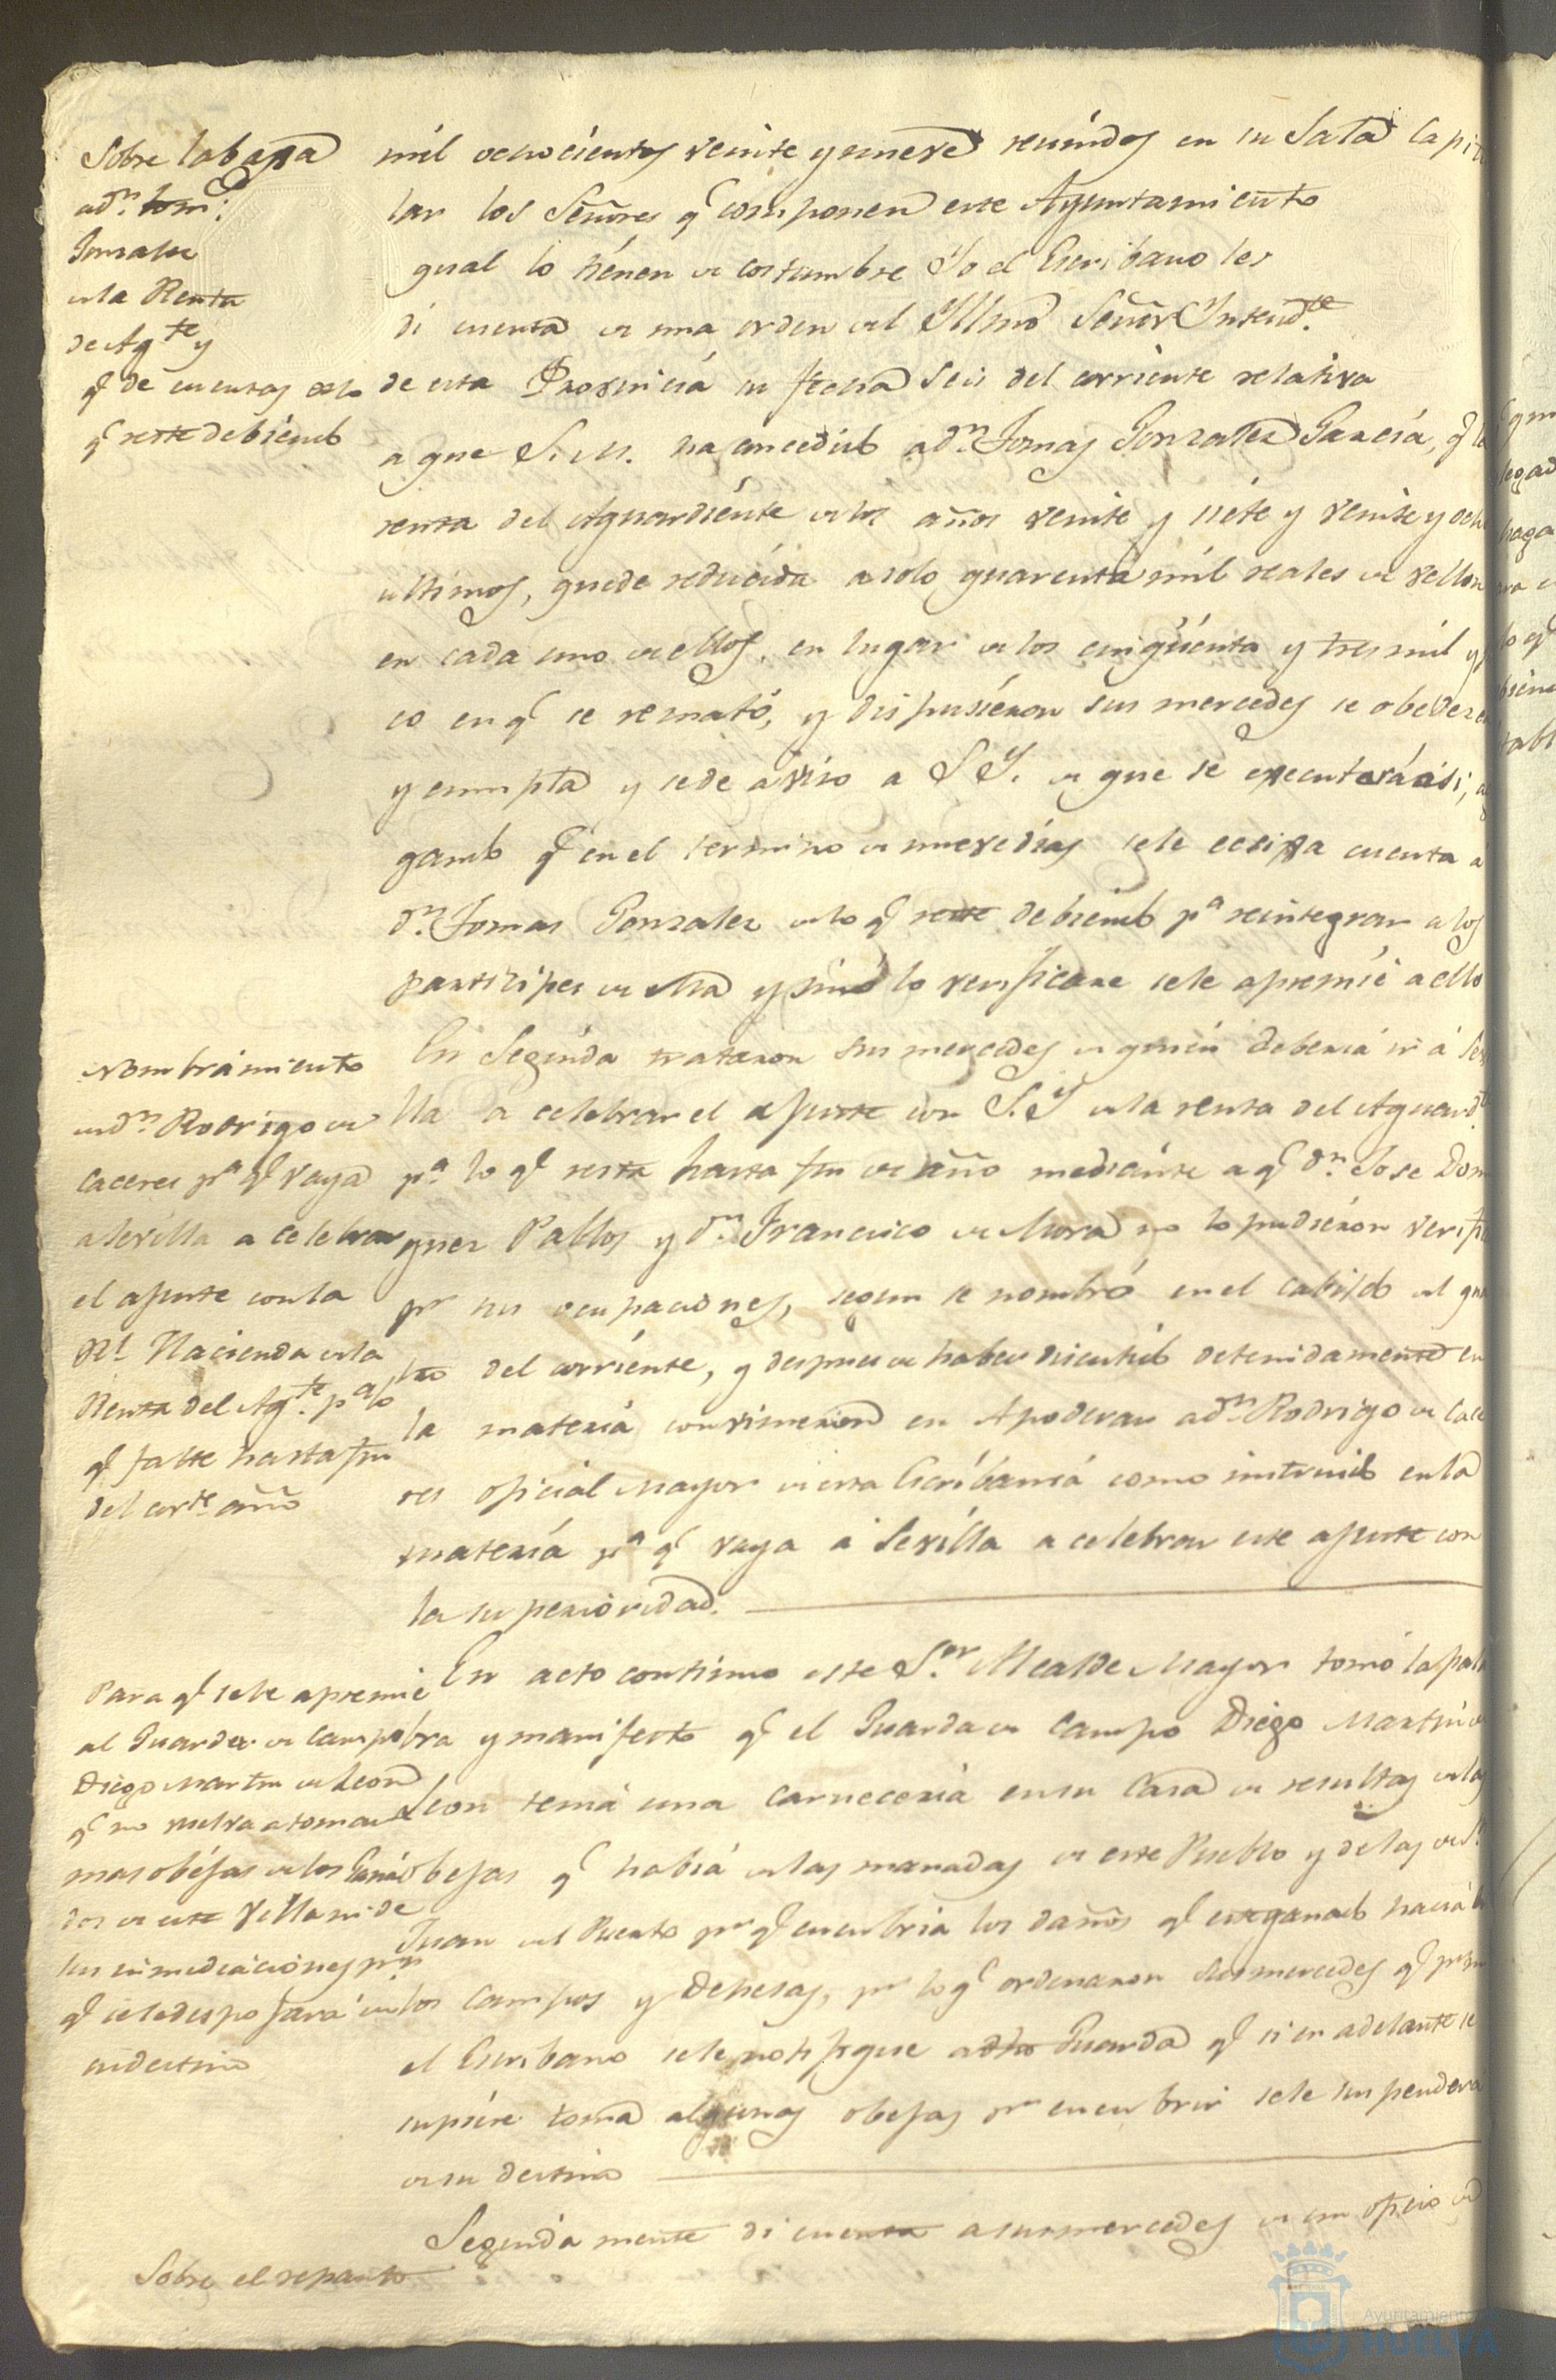 Sobre la baxa
a Dn. Tom.s
Gonzalez
de la Renta
de Agte y
q de cuentas de lo
q reste debiendo
mil ochocientos veinte y nueve reunidos en su Sala Capitu
lar los Señores q componen este Ayuntamiento
qual lo tiénen de costumbre Yo el Escribano les
di cuenta de una orden del Yllmo Señor Yntendte
de esta Provincia su fecha seis del corriente relativa
a que S. M. ha concedido a Dn. Tomas Gonzalez Garcia, q la
renta del Aguardiénte de los años veinte y siéte y veinte y ocho
ultimos, quede reducida a solo quarenta mil reales de vellon
en cada uno de ellos, en lugar de los cinqüenta y tres mil y
co en q se remató, y dispusiéron sus mercedes se obedezca
y cumpla y se de aviso a S Y. de que se executará asi,
gando q en el termino de nueve dias se le exija cuenta á
Dn. Tomas Gonzalez de lo q reste debiendo pa reintegrar a los
participes de ella y sinó lo verificare se le apremié a ello
Nombrámiento
de Dn. Rodrigo de
Caceres pa q vaya
a Sevilla a celebrar
el ajuste con la
Rl Hacienda de la
Renta del Agte. pa lo
q falte hasta fin
del corte. año
En Segúida trataron sus mercedes de quién deberia ir á Sevi
lla a celebrar el ajuste con S. Y de la renta del Aguardte
pa. lo q resta hasta fin de año mediánte a q Dn Jose Domin
guez Pablos y Dn Francisco de Mora no lo pudiéron verifi
pr sus ocupaciones, segun se nombró en el cabildo del qua
tro del corriénte, y despues de haber discutido detenidamente en
la materia convinieron en Apoderar a Dn Rodrigo de Cace
res oficial mayor de esta Escribania como instruido en la
materia pa q vaya á Sevilla a celebrar este ajuste con
la superioridad.
Para q se le apremie
al Guarda de Campo
Diego Martin de Leon
q no vuelva a tomar
mas obéjas de los Ganá
dos de esta Villa ni de
sus inmediaciónes pr
q se le despojará de
su destino
En acto continuo este Sor. Alcalde mayor tomó la pala
bra y manifesto q el Guarda de Campo Diego Martin de
Leon tenia una carneceria en su Casa de resultas de las
obejas q habiá de las manadas de este Pueblo y de las de Sn
Juan del Puerto pr q encubria los daños q este ganado hacia en
los Campos y Dehesas, pr lo q ordenaron sus mercedes q pr mi
el Escribano se le notifique a dho Guarda q si en adelante se
supiére toma algunas obejas pr encubrir se le suspenderá
de su destino
Sobre el reparto
Seguidamente di cuenta a sus mercedes de un oficio de
Ayuntamiento
HUELVA